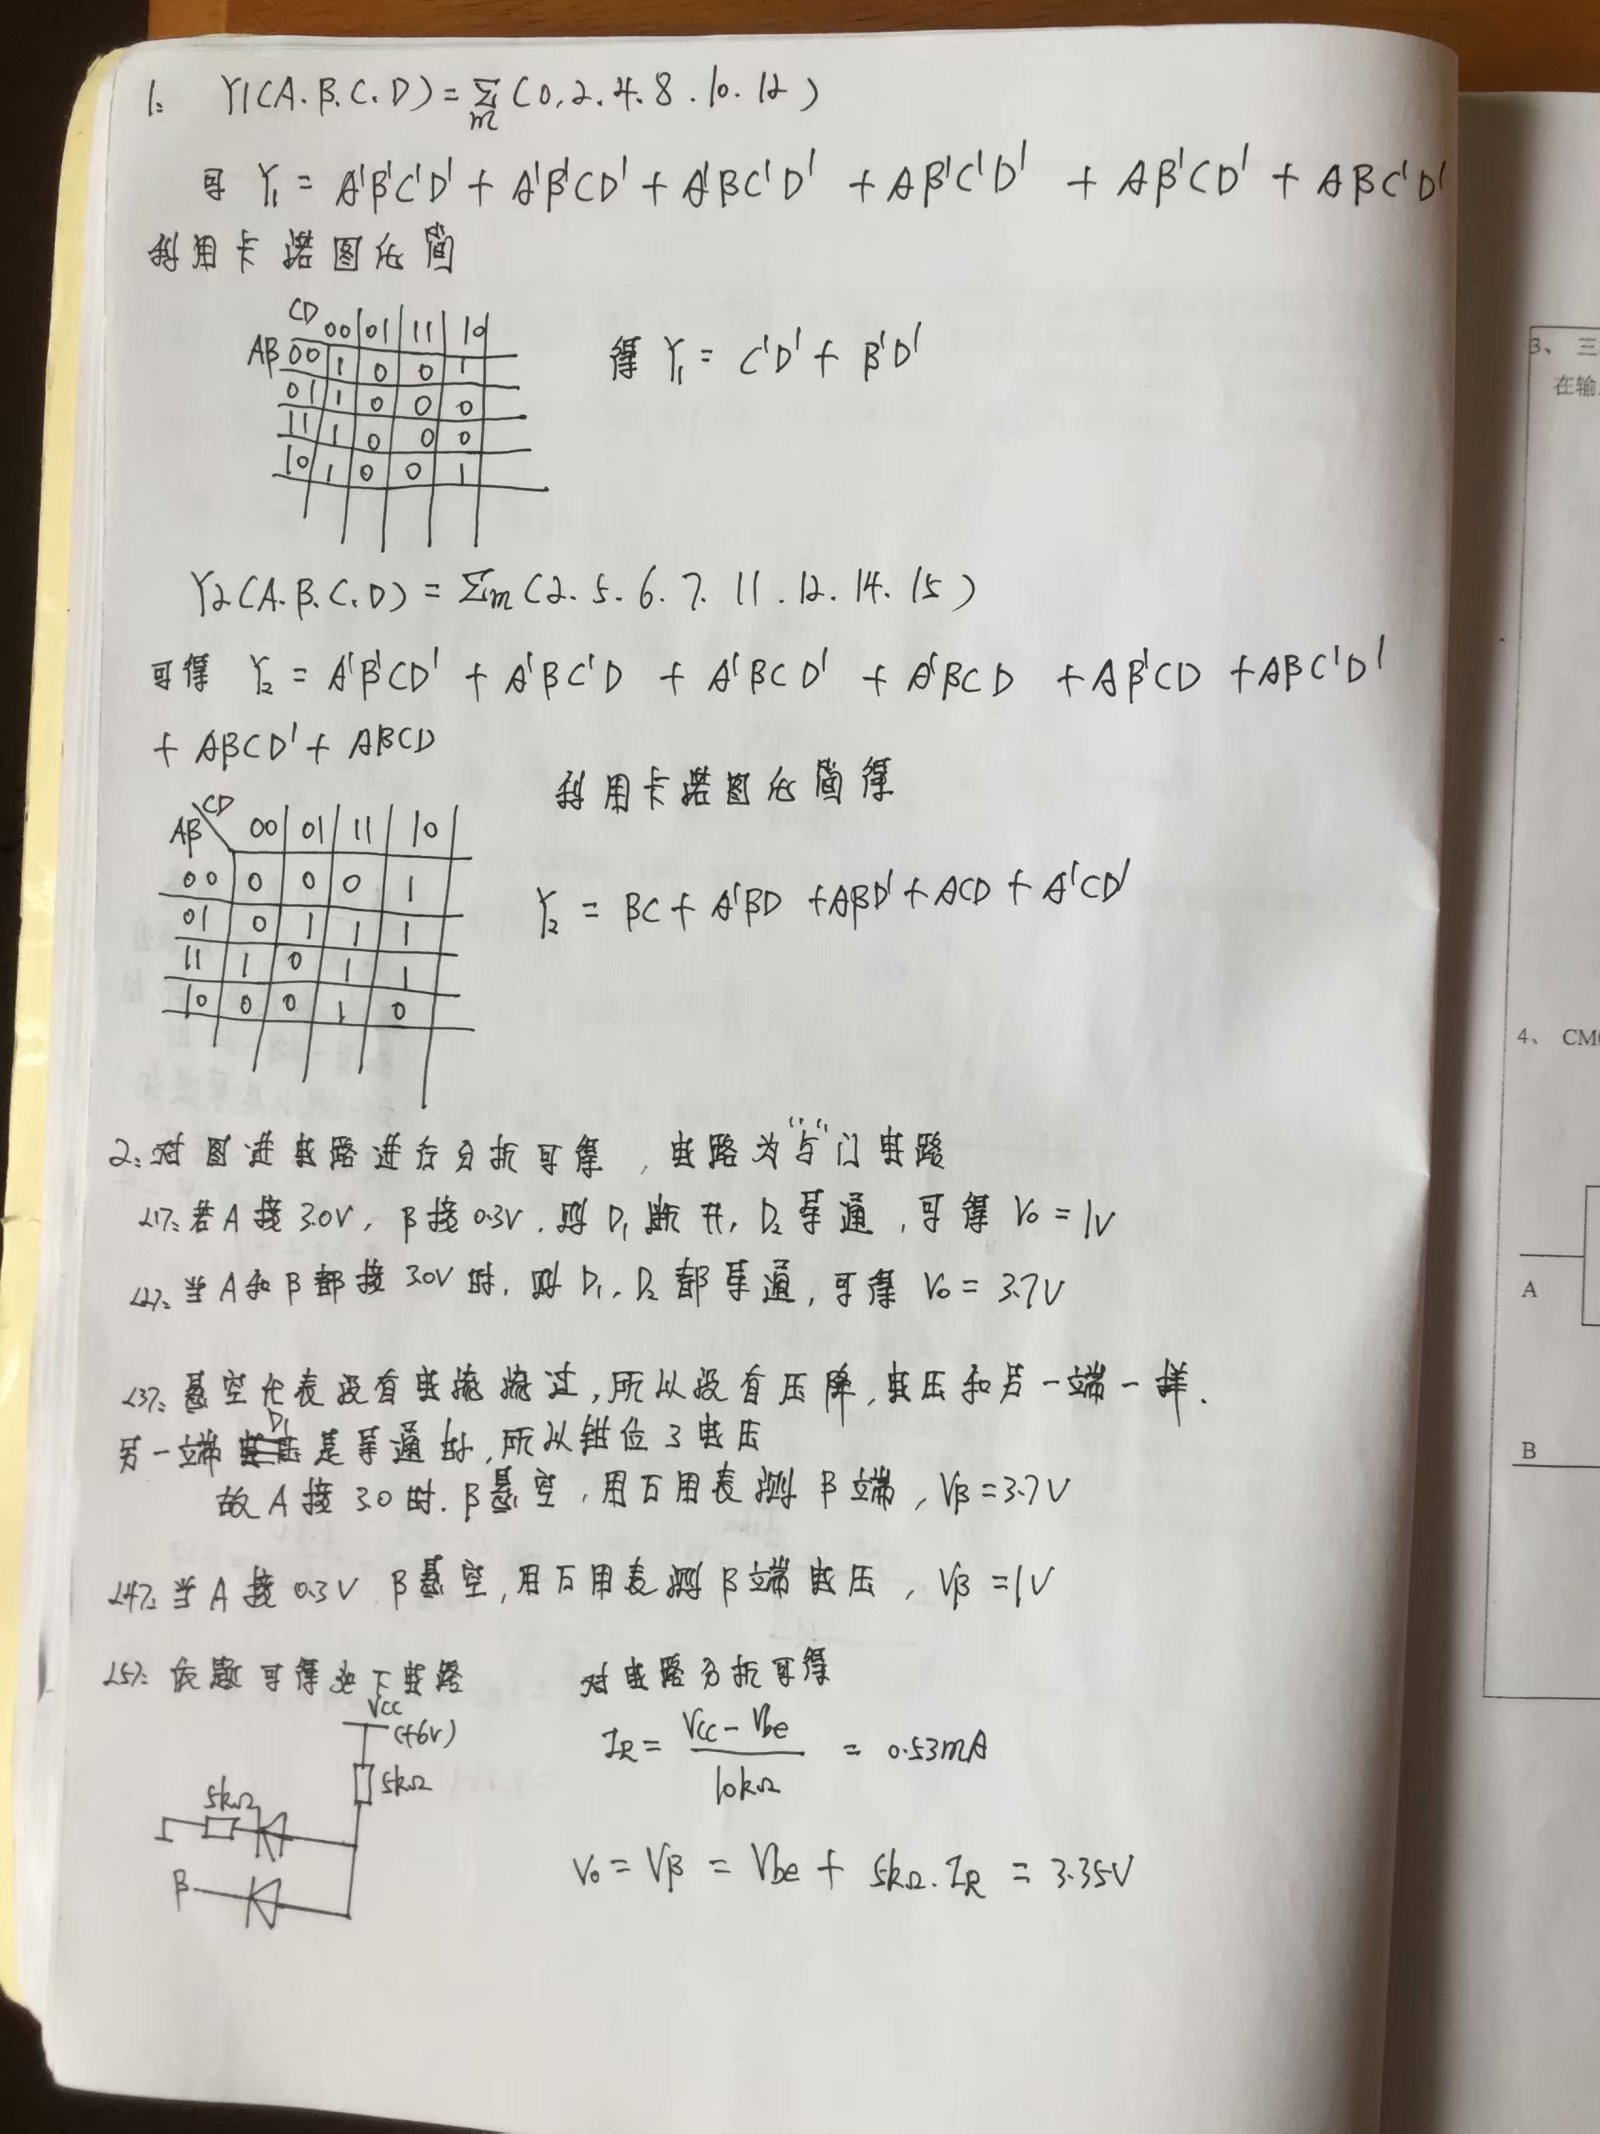 1. Y1(A.B.C.D) = Σm (0.2.4.8.10.12)
可 Y₁ = A'B'C'D' + A'B'CD' + A'BC'D' + AB'C'D' + AB'CD' + ABC'D'
利用卡诺图化简
CD 00 01 11 10
AB 00 1 0 0 1
01 1 0 0 0
11 1 0 0 0
10 1 0 0 1
得 Y₁ = C'D' + B'D'
Y2(A.B.C.D) = Σm (2.5.6.7.11.12.14.15)
可得 Y₂ = A'B'CD' + A'BC'D + A'BCD' + A'BCD + AB'CD + ABC'D'
+ ABCD' + ABCD
利用卡诺图化简得
AB CD 00 01 11 10
00 0 0 0 1
01 0 1 1 1
11 1 0 1 1
10 0 0 1 0
Y₂ = BC + A'BD + ABD' + ACD + A'CD'
2. 对图进电路进行分析可得，电路为"与"门电路
<1>: 若A接3.0V, B接0.3V. 则D₁断开, D₂导通, 可得 V₀ = 1V
<2>: 当A和B都接3.0V时, 则D₁, D₂都导通, 可得 V₀ = 3.7V
<3>: 悬空代表没有电流流过, 所以没有压降, 电压和另一端一样.
另一端D₁是导通的, 所以钳位了电压
故A接3.0时. B悬空, 用万用表测B端, VB = 3.7V
<4>: 当A接0.3V B悬空, 用万用表测B端电压, VB = 1V
<5>: 依题可得如下电路
对电路分析可得
Vcc
(+6V)
5kΩ
5kΩ
B
IR = (Vcc - Vbe) / 10kΩ = 0.53mA
V₀ = VB = Vbe + 5kΩ.IR = 3.35V
3、 三
在输
4、 CM
A
B